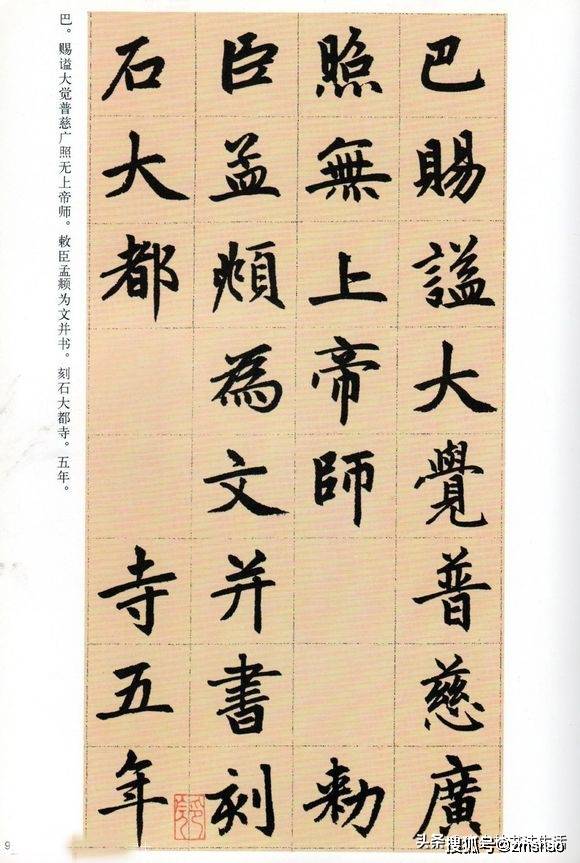 巴賜謚大覺普慈廣
照無上帝師 勑
臣孟頫為文并書刻
石大都 寺五年
巴。赐谥大觉普慈广照无上帝师。敕臣孟頫为文并书。刻石大都寺。五年。
9
搜狐号@zmshso